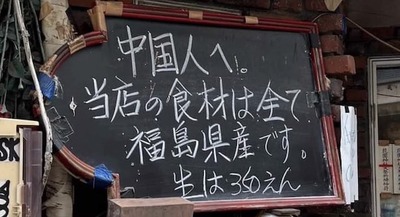 中国人へ。
当店の食材は全て
福島県産です。
生は350えん
SK